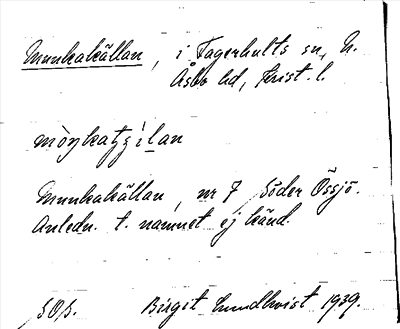 Munkakällan, i Fagerhults sn, N.
Åsbo hd, Krist. l.
Munkakällan, nr 7 Söder Össjö.
Anledn. t. namnet ej känd.
SOÅ. Birgit Lundkvist 1939.